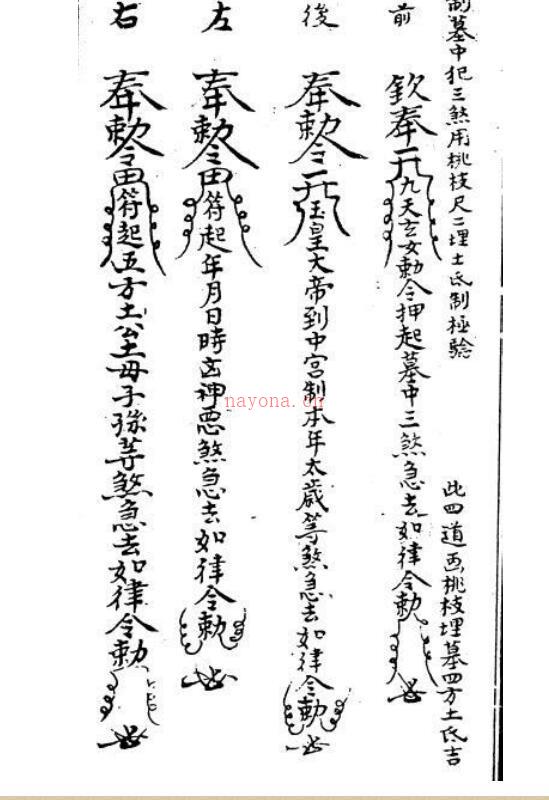 制墓中犯三煞用桃枝尺二埋土氐制極驗
此四道画桃枝埋墓四方土氐吉
前
欽奉九天玄女勅令押起墓中三煞急去如律令勅
後
奉勅令玉皇大帝到中宫制本年太歲等煞急去如律令勅
左
奉勅令田符起年月日時凶神惡煞急去如律令勅
右
奉勅令田符起五方土公土母子孫等煞急去如律令勅
nayona.cn